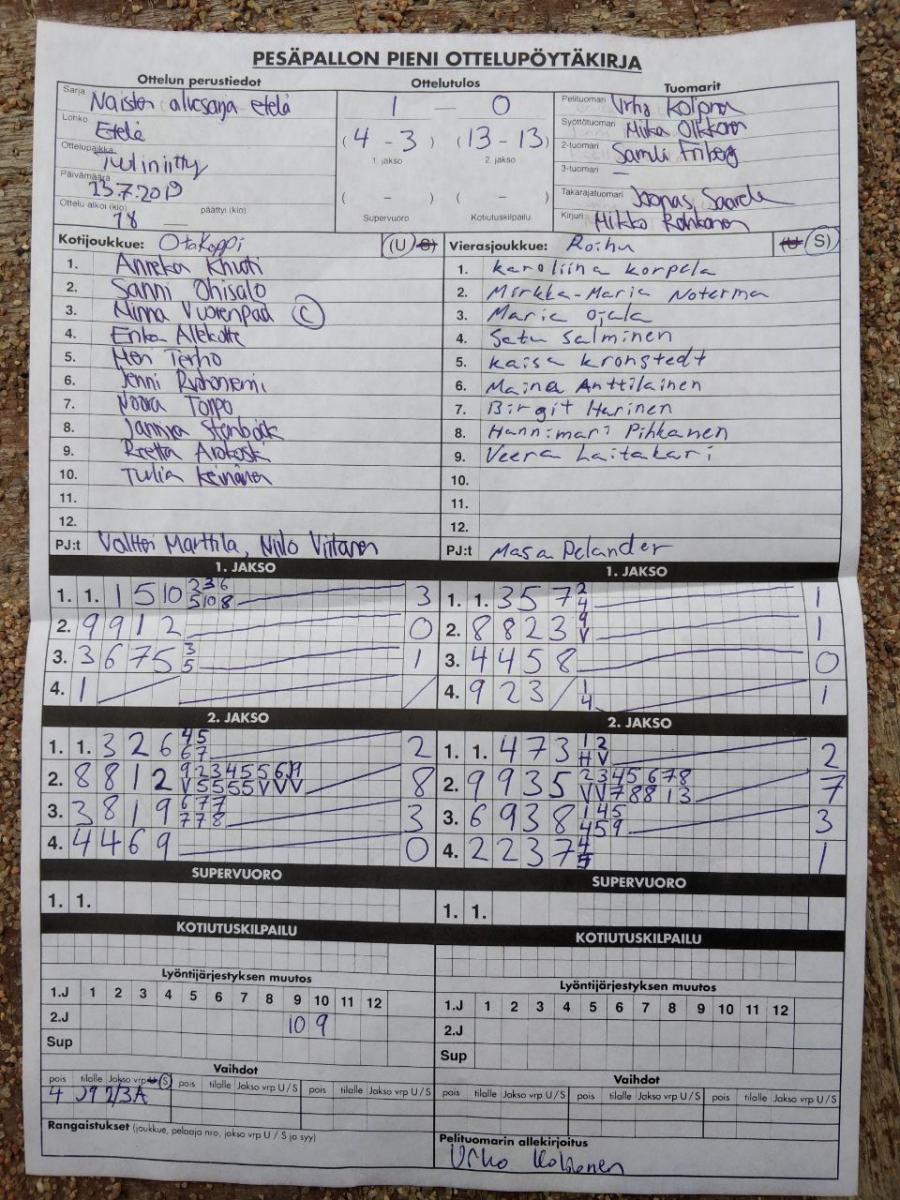 PESÄPALLON PIENI OTTELUPÖYTÄKIRJA
Ottelun perustiedot
Sarja Naisten aluesarja etelä
Lohko Etelä
Ottelupaikka Tuliniitty
Päivämäärä 13.7.2019
Ottelu alkoi (klo) 18 päättyi (klo) —
Ottelutulos
1 — 0
(4 - 3) (13 - 13)
1. jakso 2. jakso
( - ) ( - )
Supervuoro Kotiutuskilpailu
Tuomarit
Pelituomari Urho
Syöttötuomari Miika Olkkonen
2-tuomari Samuli Friberg
3-tuomari —
Takarajatuomari Joonas Saarela
Kirjuri Mikko
Kotijoukkue: OtaKoppi (U)
1. Annika
2. Sanni Ohisalo
3. Minna Vuorenpää (C)
4.
5. Terho
6. Jenni
7. Noora
8.
9. Reetta
10. Tulia Keinänen
11.
12.
PJ:t Valtteri Marttila, Niilo Viitanen
Vierasjoukkue: Roihu (S)
1. Karoliina Korpela
2. Mirkka-Maria Noterma
3. Maria Ojala
4. Satu Salminen
5. Kaisa Kronstedt
6. Maina Anttilainen
7. Birgit Harinen
8. Hannimari Pihkanen
9. Veera Laitakari
10.
11.
12.
PJ:t Masa Pelander
1. JAKSO
1. 1. 1 5 10 2 3 6 3
5 10 8
2. 9 9 1 2 0
3. 3 6 7 5 3 1
5
4. 1 /
1. JAKSO
1. 1. 3 5 7 2 1
4
2. 8 8 2 3 9 1
V
3. 4 4 5 8 0
4. 9 2 3 / 1 1
4
2. JAKSO
1. 1. 3 2 6 4 5 2
6 7
2. 8 8 1 2 9 2 3 4 5 5 6 9 8
V 5 5 5 5 V V V
3. 3 8 1 9 6 7 7 3
7 7 8
4. 4 4 6 9 0
2. JAKSO
1. 1. 4 7 3 1 2 2
4 V
2. 9 9 3 5 2 3 4 5 6 7 8 7
V V 7 8 8 1 3
3. 6 9 3 8 1 4 5 3
4 5 9
4. 2 2 3 7 4 1
SUPERVUORO
1. 1.
SUPERVUORO
1. 1.
KOTIUTUSKILPAILU
KOTIUTUSKILPAILU
Lyöntijärjestyksen muutos
1.J 1 2 3 4 5 6 7 8 9 10 11 12
2.J 10 9
Sup
Lyöntijärjestyksen muutos
1.J 1 2 3 4 5 6 7 8 9 10 11 12
2.J
Sup
Vaihdot
pois tilalle Jakso vrp U (S) pois tilalle Jakso vrp U / S pois tilalle Jakso vrp U / S
4 J9 2/3A
Vaihdot
pois tilalle Jakso vrp U / S pois tilalle Jakso vrp U / S pois tilalle Jakso vrp U / S
Rangaistukset (joukkue, pelaaja nro, jakso vrp U / S ja syy)
Pelituomarin allekirjoitus
Urho